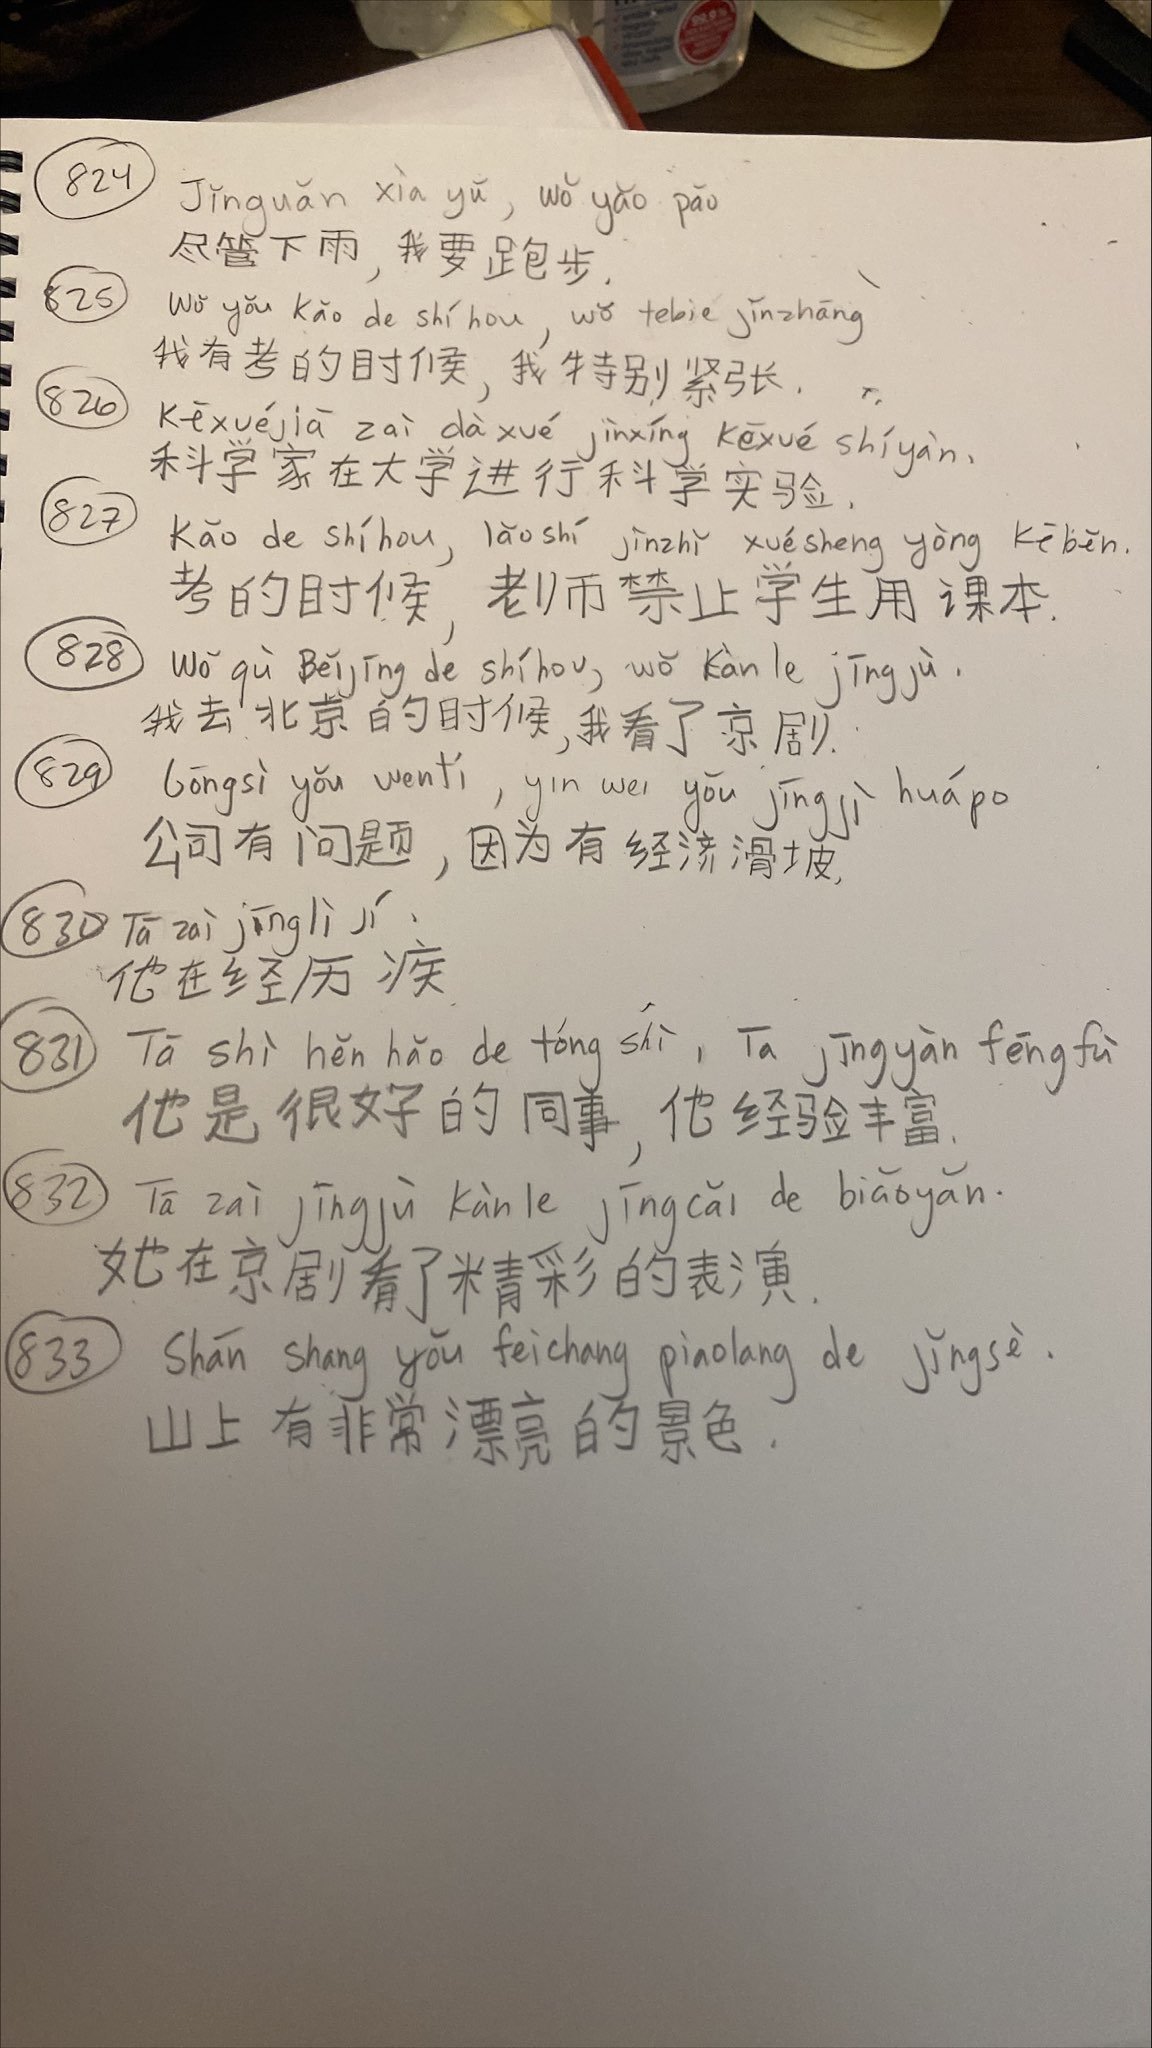 99.9%
824
Jǐnguǎn xìa yǔ, wǒ yǎo pǎo
尽管下雨,我要跑步.
825
Wǒ yǒu kǎo de shíhou, wǒ tebie jǐnzhāng
我有考的时候,我特别紧张.
826
Kēxuéjiā zaì dàxué jìnxíng Kēxué shíyàn.
科学家在大学进行科学实验.
827
Kǎo de shíhou, lǎoshí jìnzhǐ xuésheng yòng Kēběn.
考的时候,老师禁止学生用课本.
828
Wǒ qù Běijīng de shíhou, wǒ Kànle jīngjù.
我去北京的时候,我看了京剧.
829
Gōngsì yǒu wentí, yin wei yǒu jīngjì huápo
公司有问题,因为有经济滑坡.
830
Tā zaì jīnglì jí.
他在经历
831
Tā shì hěn hǎo de tóngshì, Ta jīngyàn fēngfù
他是很好的同事,他经验丰富.
832
Tā zaì jīngjù kànle jīngcǎi de biǎoyǎn.
她在京剧看了精彩的表演.
833
Shān shang yǒu feichang piaolang de jǐngsè.
山上有非常漂亮的景色.